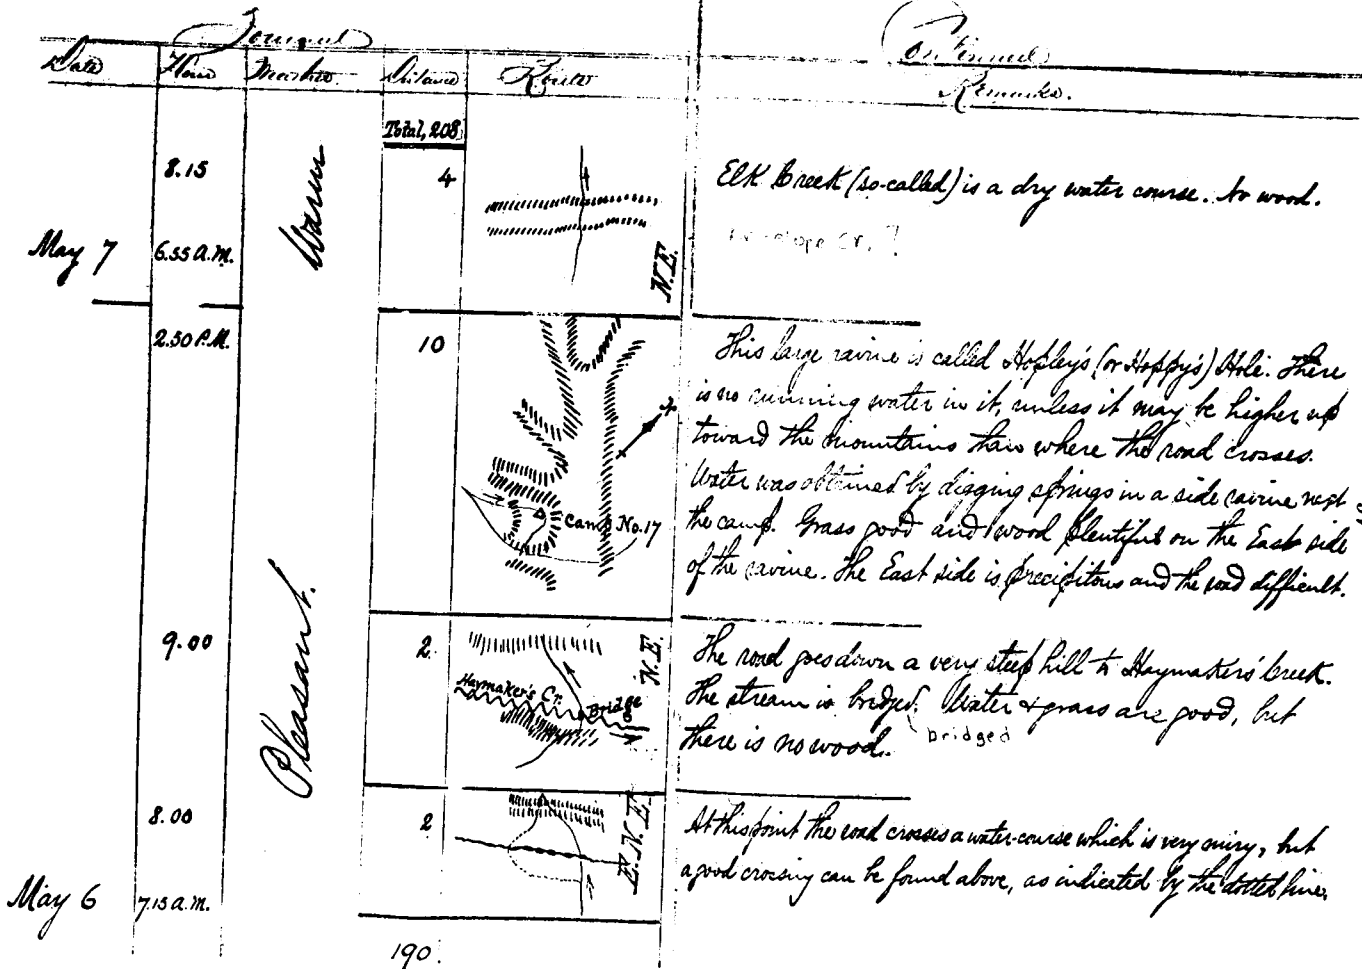 Journal
Continued
Date Hour Weather Distance Route
Remarks.
Total, 208
8.15
4
Elk Creek (so-called) is a dry water course. No wood.
May 7
6.55 A.M.
Warm
N.E.
Cr. ?
2.50 P.M.
10
Camp No. 17
This large ravine is called Hopley's (or Hoppy's) Hole. There
is no running water in it, unless it may be higher up
toward the mountains than where the road crosses.
Water was obtained by digging springs in a side ravine next
the camp. Grass good and wood plentiful on the East side
of the ravine. The East side is precipitous and the road difficult.
9.00
Pleasant.
2
N.E.
Haymaker's Cr.
Bridge
The road goes down a very steep hill to Haymakers' Creek.
The stream is bridged. Water & grass are good, but
bridged
there is no wood.
8.00
2
E.N.E.
At this point the road crosses a water-course which is very miry, but
a good crossing can be found above, as indicated by the dotted line.
May 6
7.15 A.M.
190.